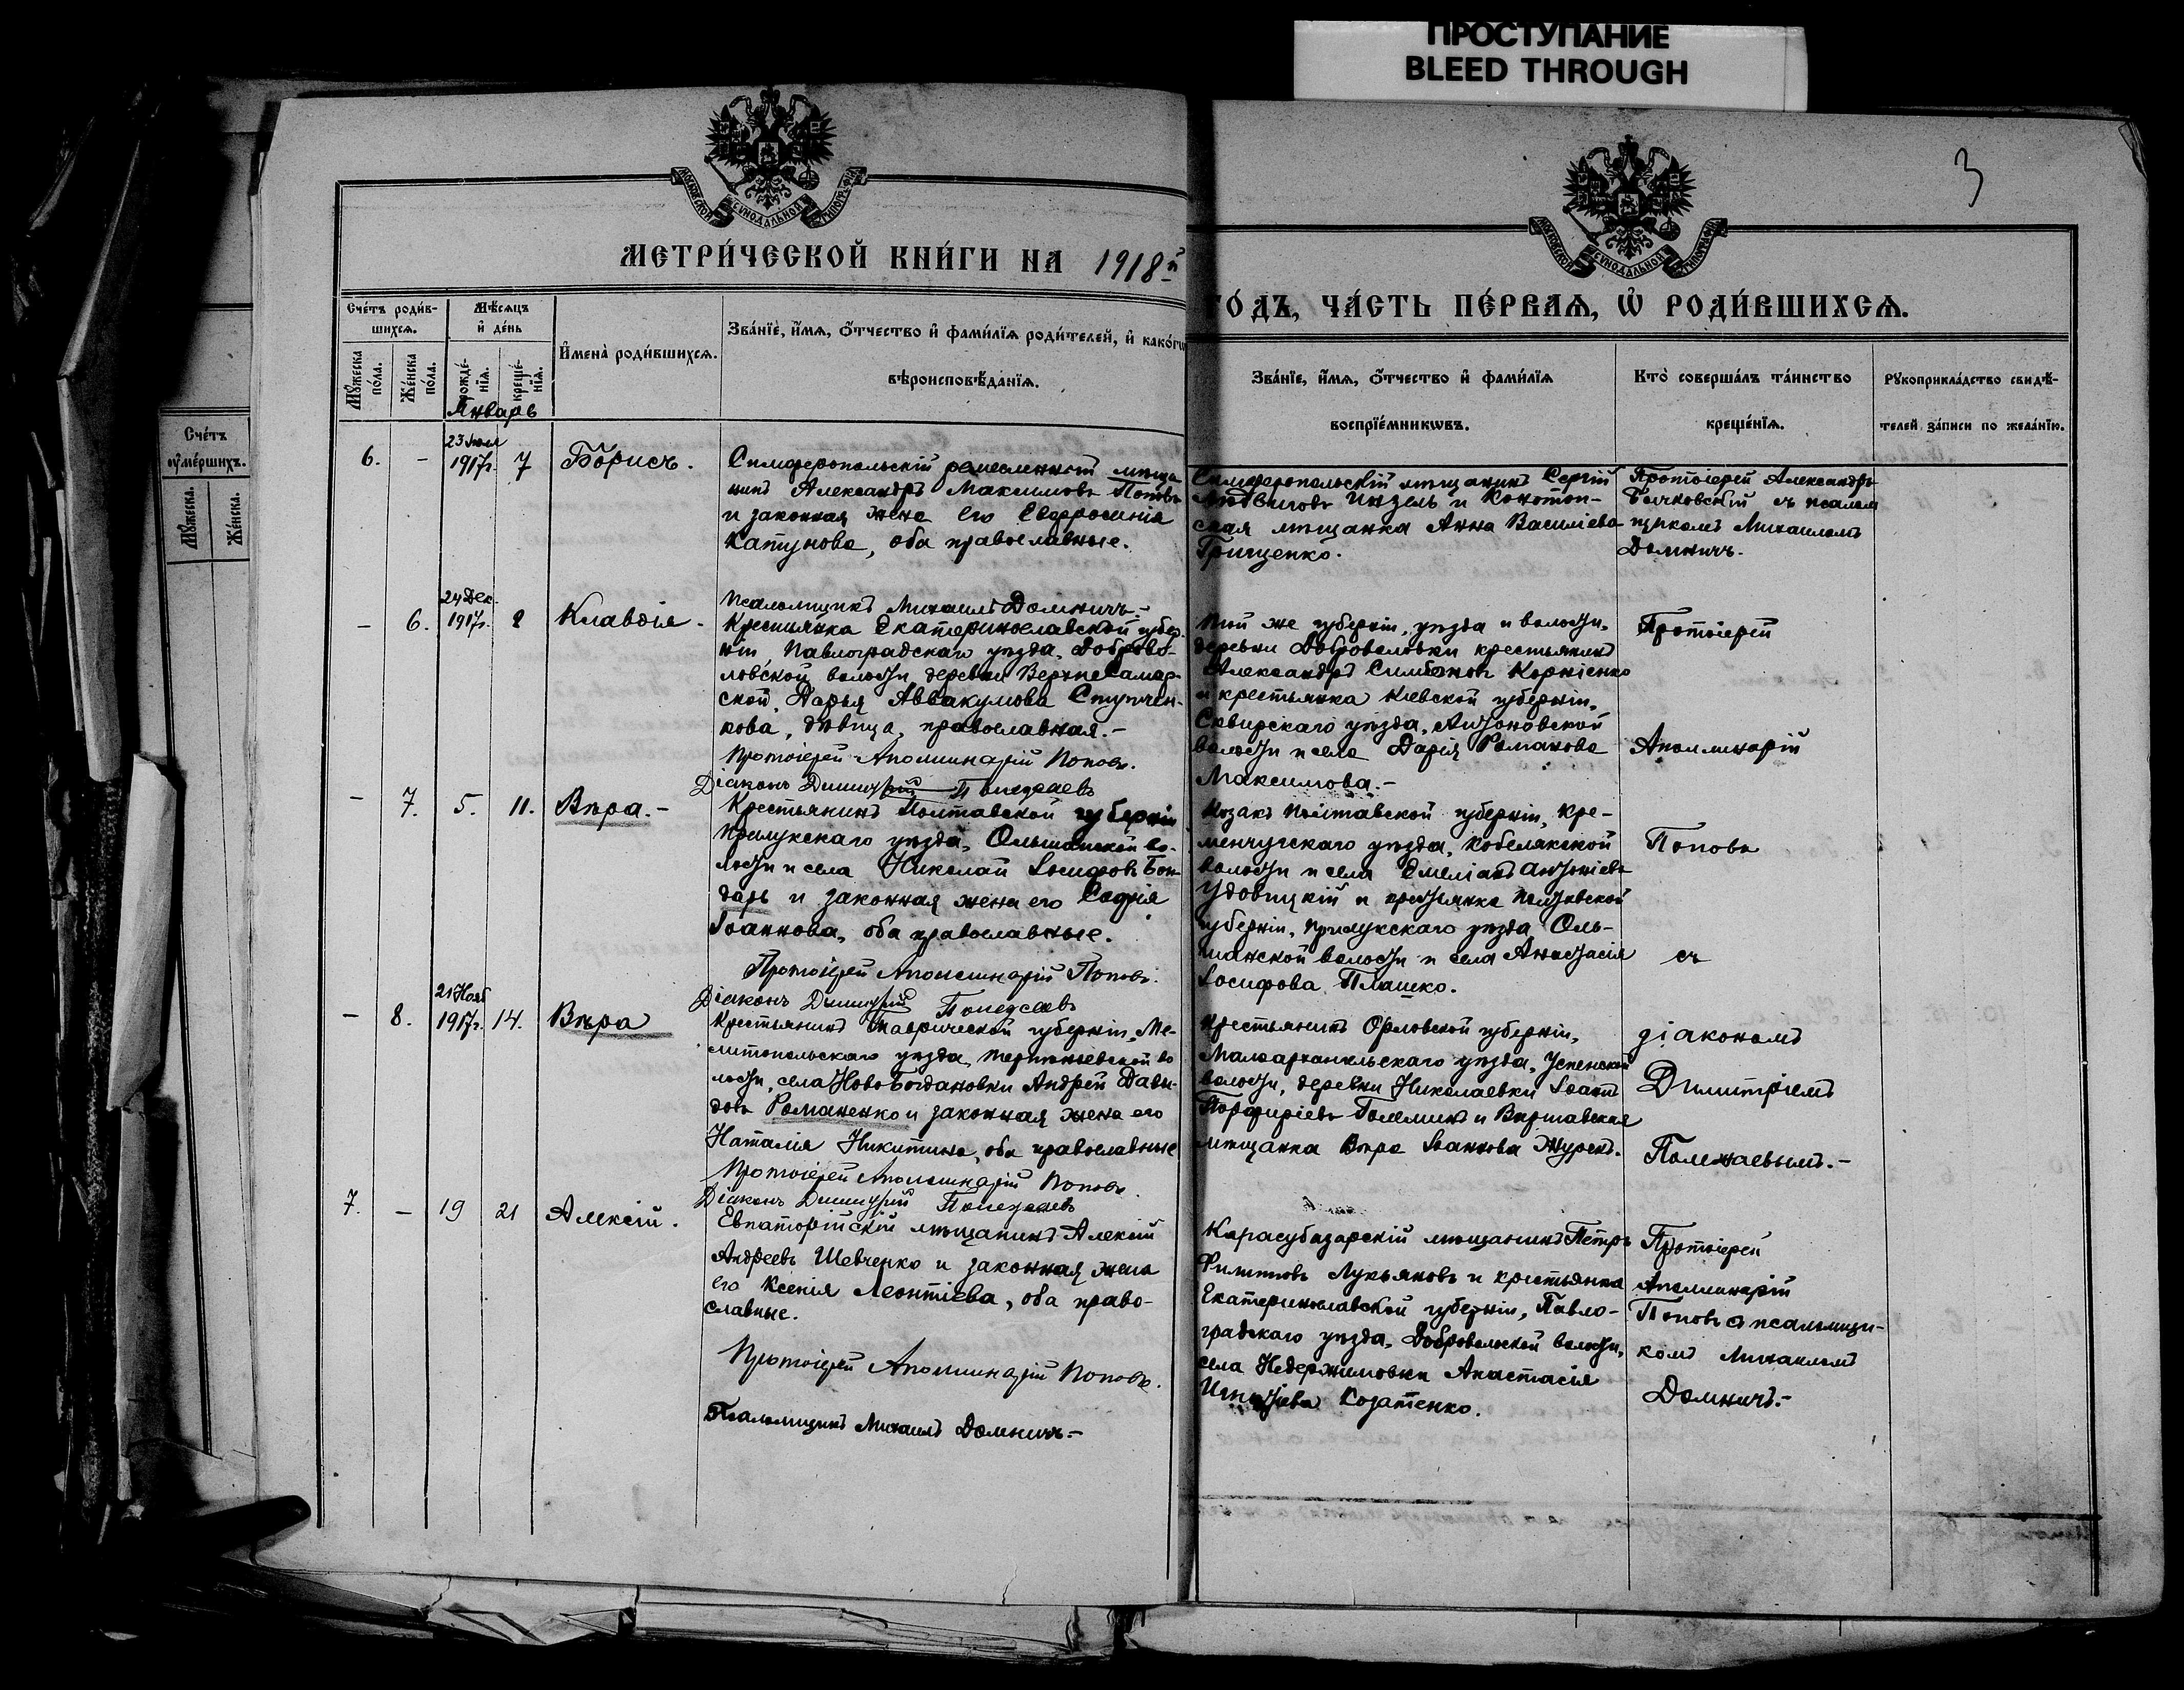 ПРОСТУПАНИЕ
BLEED THROUGH
3
МОСКОВСКОЙ СѴНОДАЛЬНОЙ ТИПОГРАФІИ
МОСКОВСКОЙ СѴНОДАЛЬНОЙ ТИПОГРАФІИ
МЕТРИ́ЧЕСКОЙ КНИ́ГИ НА 1918й
ГО́ДЪ, ЧА́СТЬ ПЕ́РВАѦ, Ѡ҆ РОДИ́ВШИХСѦ.
Сче́тъ
ᲂу҆ме́ршихъ.
Мꙋжеска.
Же́нска.
Сче́тъ роди́в-
шихсѧ.
Мꙋжеска
по́ла.
Же́нска
по́ла.
Мѣ́сѧцъ
и҆ де́нь
рожде́-
нїѧ.
креще́-
нїѧ.
И҆мена̀ роди́вшихсѧ.
Зва́нїе, и҆́мѧ, ѻ҆́тчество и҆ фами́лїѧ роди́телей, и҆ како́гѡ
вѣроисповѣ́данїѧ.
Зва́нїе, и҆́мѧ, ѻ҆́тчество и҆ фами́лїѧ
воспрїе́мникѡвъ.
Кто̀ соверша́лъ та́инство
креще́нїѧ.
Рꙋкоприкла́дство свидѣ́-
телей за́писи по жела́нїю.
Январь
6. - 23 Іюля
1917г. 7 Борисъ.
Симферопольскій ремесленный мѣща
нинъ Александръ Максимовъ Поповъ
и законная жена его Евфросинія
Капунова, оба православные.
Симферопольскій мѣщанинъ Сергій
Людвиговъ Инзель и Конотоп-
ская мѣщанка Анна Василіева
Грищенко.
Протоіерей Александръ
Бычковскій съ псалом
щикомъ Михаиломъ
Домничъ.
Псаломщикъ Михаилъ Домничъ.-
- 6. 24 Дек.
1917г. 2 Клавдія.
Крестьянка Екатеринославской губер.
ніи Павлоградскаго уѣзда, Доброво-
ловской волости, деревни ВерхнеСамар-
ской, Дарья Аввакумова Ступчен-
кова, дѣвица, православная.-
Протоіерей Аполлинарій Поповъ.
Діаконъ Димитрій Полежаевъ
Той же губерніи, уѣзда и волости,
деревни Доброволовки крестьянинъ
Александръ Симеоновъ Корніенко
и крестьянка Кіевской губерніи,
Сквирскаго уѣзда, Антоновской
волости и села Дарія Романова
Максимова.-
Протоіерей
Аполлинарій
- 7. 5. 11. Вѣра.-
Крестьянинъ Полтавской губерніи
Прилукскаго уѣзда, Ольшанской во-
лости и села Николай Іосифовъ Бон-
дарь и законная жена его Софія
Іоаннова, оба православные.
Протоіерей Аполлинарій Поповъ.
Діаконъ Димитрій Полежаевъ
Козакъ Полтавской губерніи, Кре-
менчугскаго уѣзда, Кобелякской
волости и села Емеліанъ Антоніевъ
Удовицкій и крестьянка Полтавской
губерніи, Прилукскаго уѣзда, Оль-
шанской волости и села Анастасія
Іосифова Плашко.
Поповъ
съ
- 8. 21 Нояб
1917г. 14. Вѣра
Крестьянинъ Таврической губерніи, Ме-
литопольскаго уѣзда, Терпеньевской во
лости, села НовоБогдановки Андрей Дави-
довъ Романенко и законная жена его
Наталія Никитина, оба православные
Протоіерей Аполлинарій Поповъ.
Діаконъ Димитрій Полежаевъ
Крестьянинъ Орловской губерніи,
Малоархангельскаго уѣзда, Успенской
волости, деревни Николаевки Іоаннъ
Порфиріевъ Големинъ и Варшавская
мѣщанка Вѣра Іоаннова Журекъ.
діакономъ
Димитріемъ
Полежаевымъ.-
7. - 19 21 Алексій.
Евпаторійскій мѣщанинъ Алексій
Андреевъ Шевченко и законная жена
его Ксенія Леонтіева, оба право-
славные.
Протоіерей Аполлинарій Поповъ.
Псаломщикъ Михаилъ Домничъ.-
Карасубазарскій мѣщанинъ Петръ
Филипповъ Лукьяновъ и крестьянка
Екатеринославской губерніи, Павло-
градскаго уѣзда, Добровольской волости,
села Недержимовки Анастасія
Козатенко.
Протоіерей
Аполлинарій
Поповъ съ псаломщи-
комъ Михаиломъ
Домничъ.-